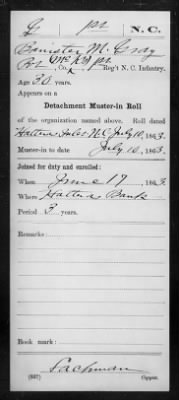 G 1st N.C.
Banister M. Gray
Pvt, Co. 1st Reg't N. C. Infantry.
Age 30 years.
Appears on a
Detachment Muster-in Roll
of the organization named above. Roll dated
Hatteras Inlet N.C. July 10, 1863.
Muster-in to date July 10, 1863.
Joined for duty and enrolled:
When June 17, 1863.
Where Hatteras Bank
Period 3 years.
Remarks:
Book mark:
Copyist.